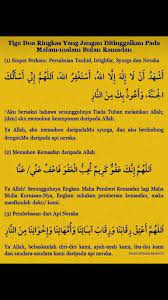 Tiga Doa Ringkas Yang Jangan Ditinggalkan Pada
Malam-malam Bulan Ramadan
(1) Empat Perkara: Persaksian Tauhid, Istighfar, Syurga dan Neraka
أَشْهَدُ أَنْ لَا إِلَهَ إِلَّا اللَّهُ أَسْتَغْفِرُ اللَّهَ اللَّهُمَّ إِنِّي أَسْأَلُكَ
الْجَنَّةَ، وَأَعُوذُ بِكَ مِنَ النَّارِ
"Aku bersaksi bahawa sesungguhnya Tiada Tuhan melainkan Allah;
(dan) aku memohon keampunan daripada Allah.
Ya Allah, aku memohon daripadaMu syurga, dan aku berlindung
denganMu daripada api neraka.
(2) Memohon Keampunan daripada Allah
اللَّهُمَّ إِنَّكَ عَفُوٌّ كَرِيمٌ تُحِبُّ الْعَفْوَ فَاعْفُ عَنِّي
Ya Allah! Sesungguhnya Engkau Maha Pemberi Kemaafan lagi Maha
Mulia Kurniaan-Nya, Engkau suka memberi kemaafan,
maka maafkanlah daku/ kami.
(3) Pembebasan dari Api neraka
Ya Allah, bebaskanlah diri-diri kami, ayah-ayah kami, ibu-ibu kami
dan saudara-saudara kami daripada api neraka.